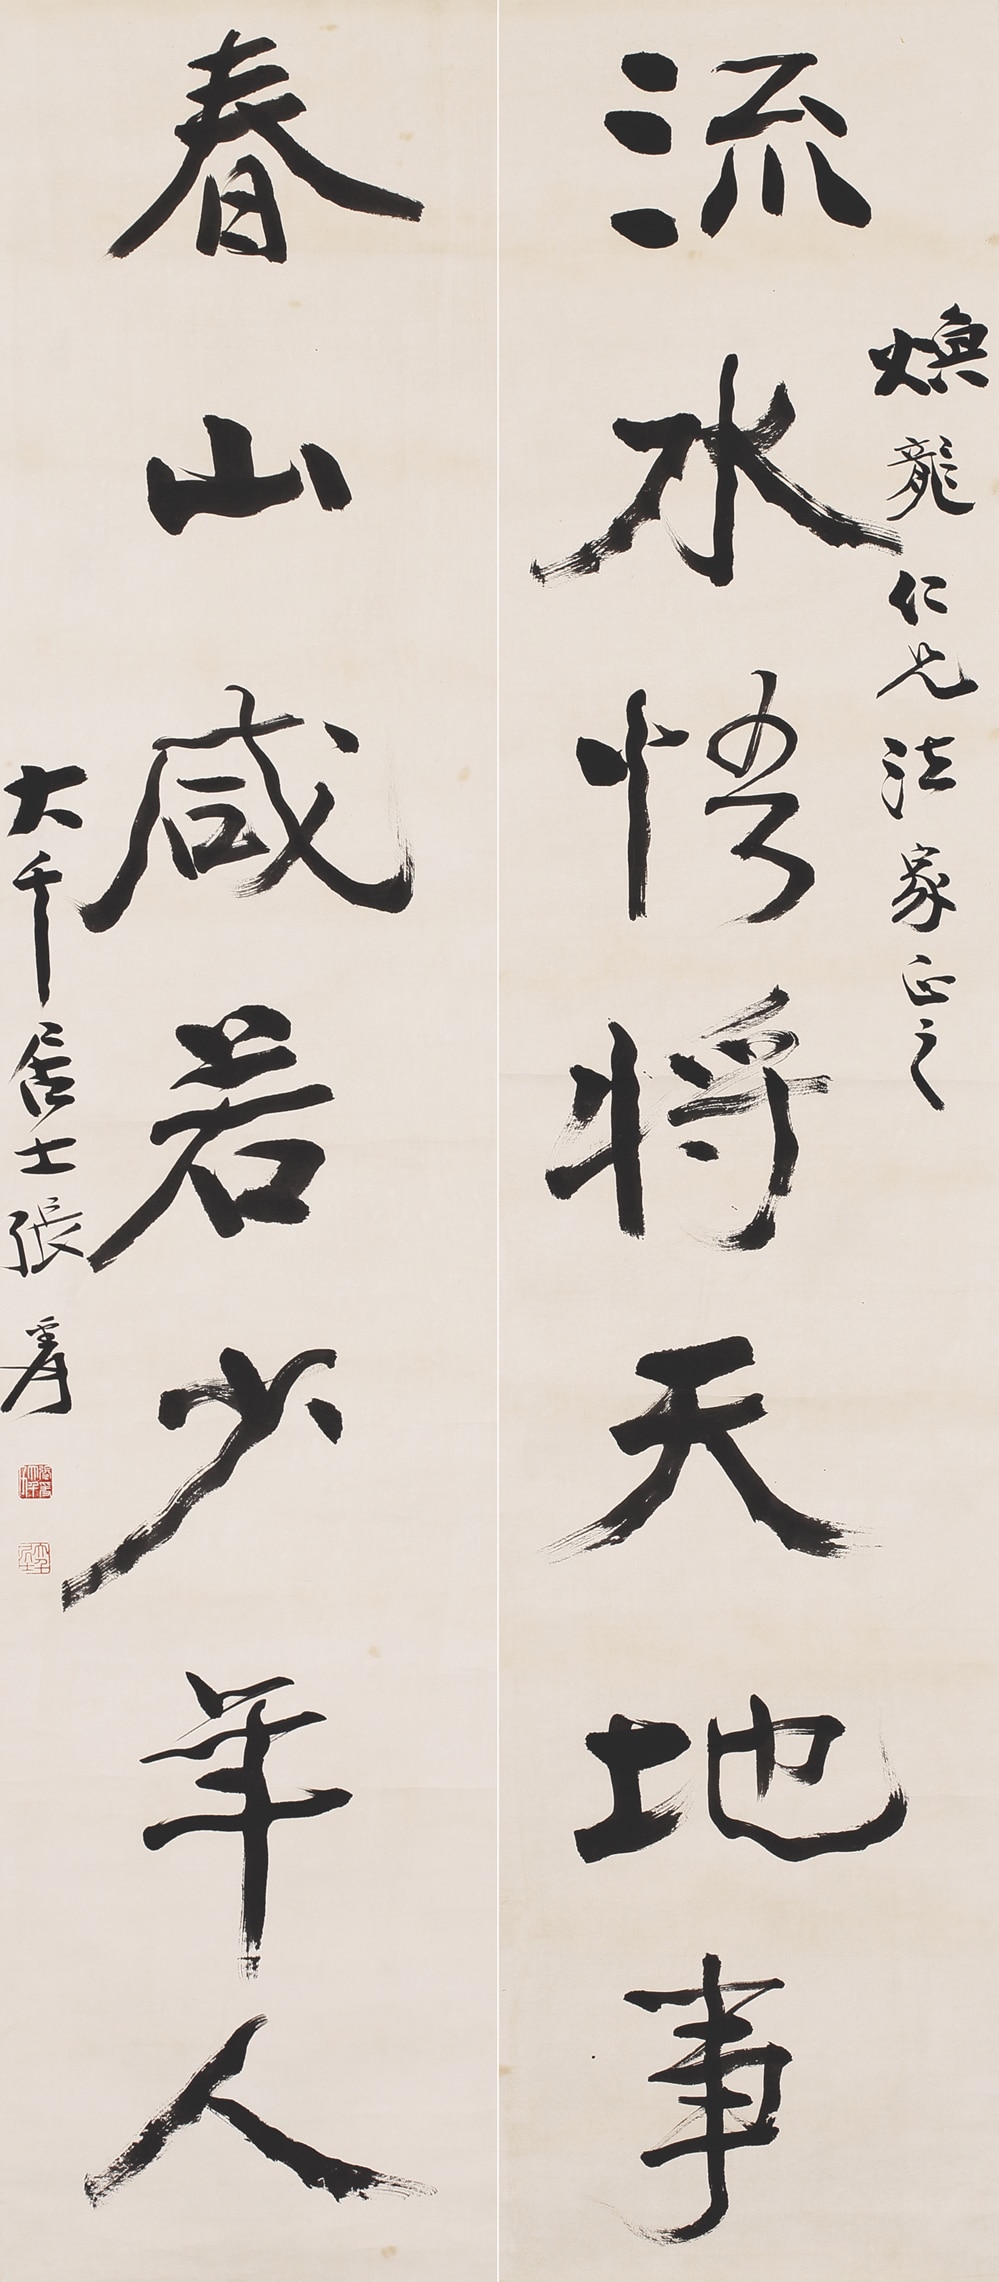 煥龍仁兄法家正之
流水悟将天地事
春山咸若少年人
大千居士張爰